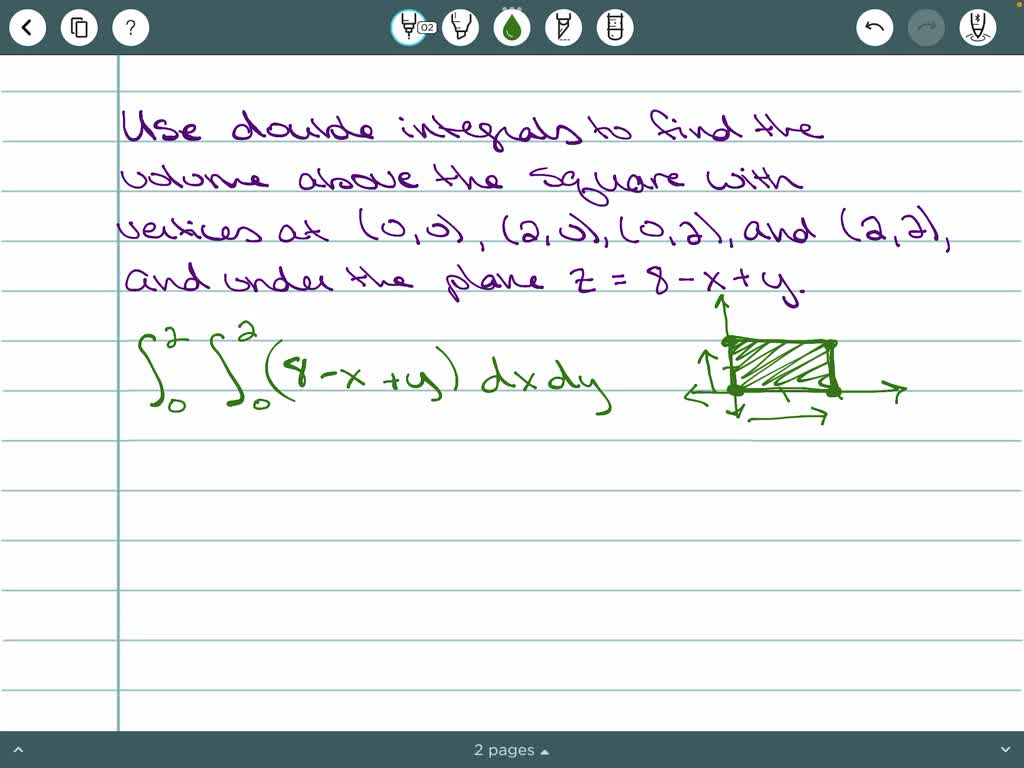 ?
02
Use double integrals to find the
volume above the square with
vertices at (0,0), (2,0), (0,2), and (2,2),
and under the plane z = 8 - x + y.
∫₀² ∫₀² (8 - x + y) dx dy
2 pages